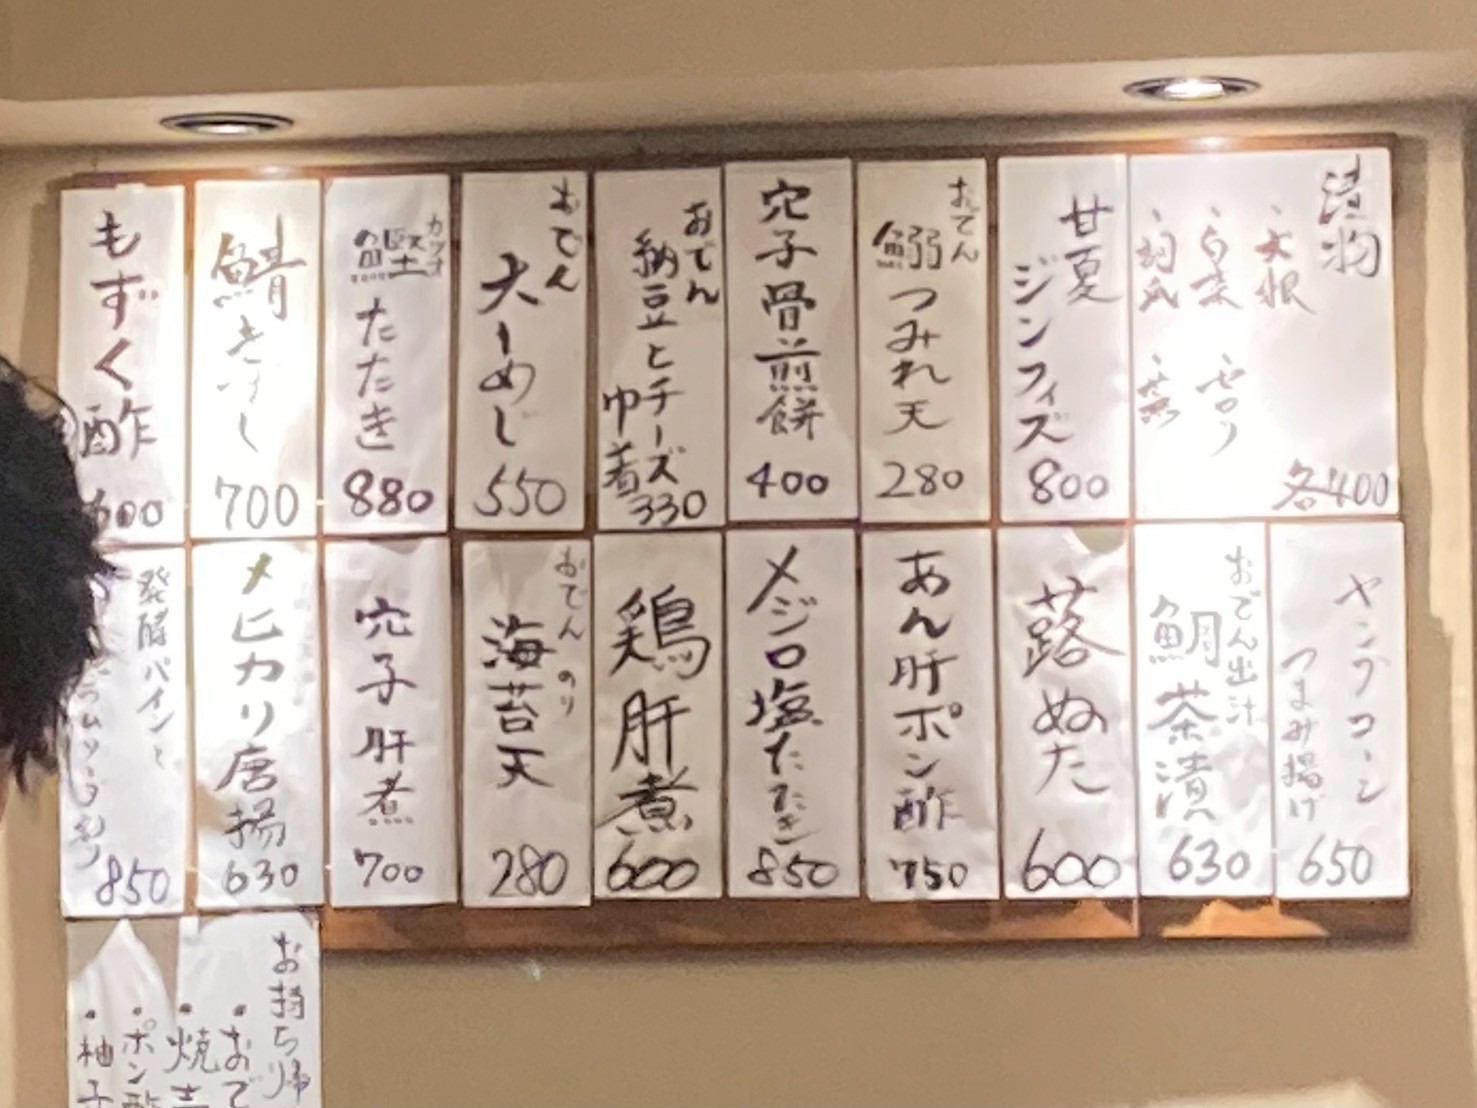 漬物
・大根
・白菜
・セロリ
・胡瓜
・蕪
各400
甘夏
ジンフィズ
800
おでん
鰯つみれ天
280
穴子骨煎餅
400
おでん
納豆とチーズ
巾着
330
おでん
大ーめじ
550
カツオ
鰹たたき
880
鯖きずし
700
もずく酢
600
ヤングコーン
つまみ揚げ
650
おでん出汁
鯛茶漬
630
蕗ぬた
600
あん肝ポン酢
750
メジロ塩たたき
850
鶏肝煮
600
おでん
のり
海苔天
280
穴子肝煮
700
メヒカリ唐揚
630
発酵パインと
850
お持ち帰
・おで
・焼き
・ポン酢
・柚子